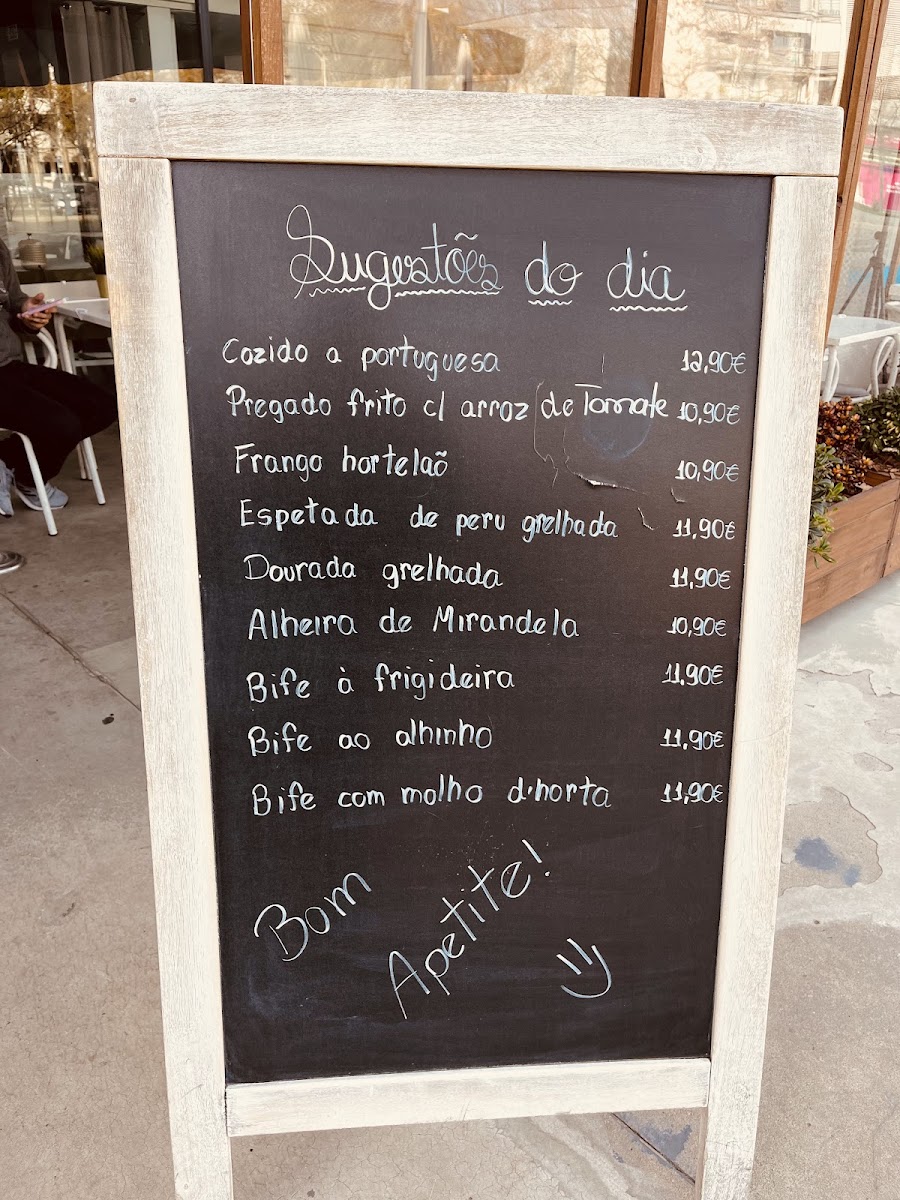 Sugestões do dia
Cozido a portuguesa 12,90€
Pregado frito c/ arroz de Tomate 10,90€
Frango hortelaõ 10,90€
Espetada de peru grelhada 11,90€
Dourada grelhada 11,90€
Alheira de Mirandela 10,90€
Bife à frigideira 11,90€
Bife ao alhinho 11,90€
Bife com molho d'horta 11,90€
Bom Apetite!